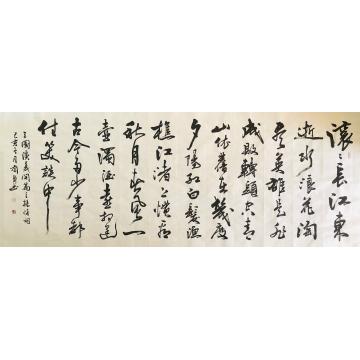 滚々長江東
逝水浪花淘
尽英雄是非
成敗轉頭空青
山依舊在幾度
夕陽紅白髮漁
樵江渚上慣看
秋月春風一
壺濁酒喜相逢
古今多少事都
付笑談中
三國演義開篇
己亥